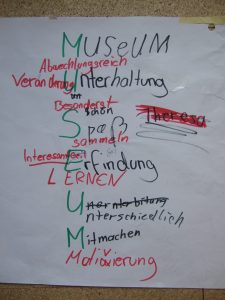 MUSEUM
Abwechlungsreich
Veränderung Unterhaltung
Besonderst schön
Theresa
Spaß
sammeln
Interessantheit Erfindung
LERNEN
Unterschiedlich
Mitmachen
Motivierung